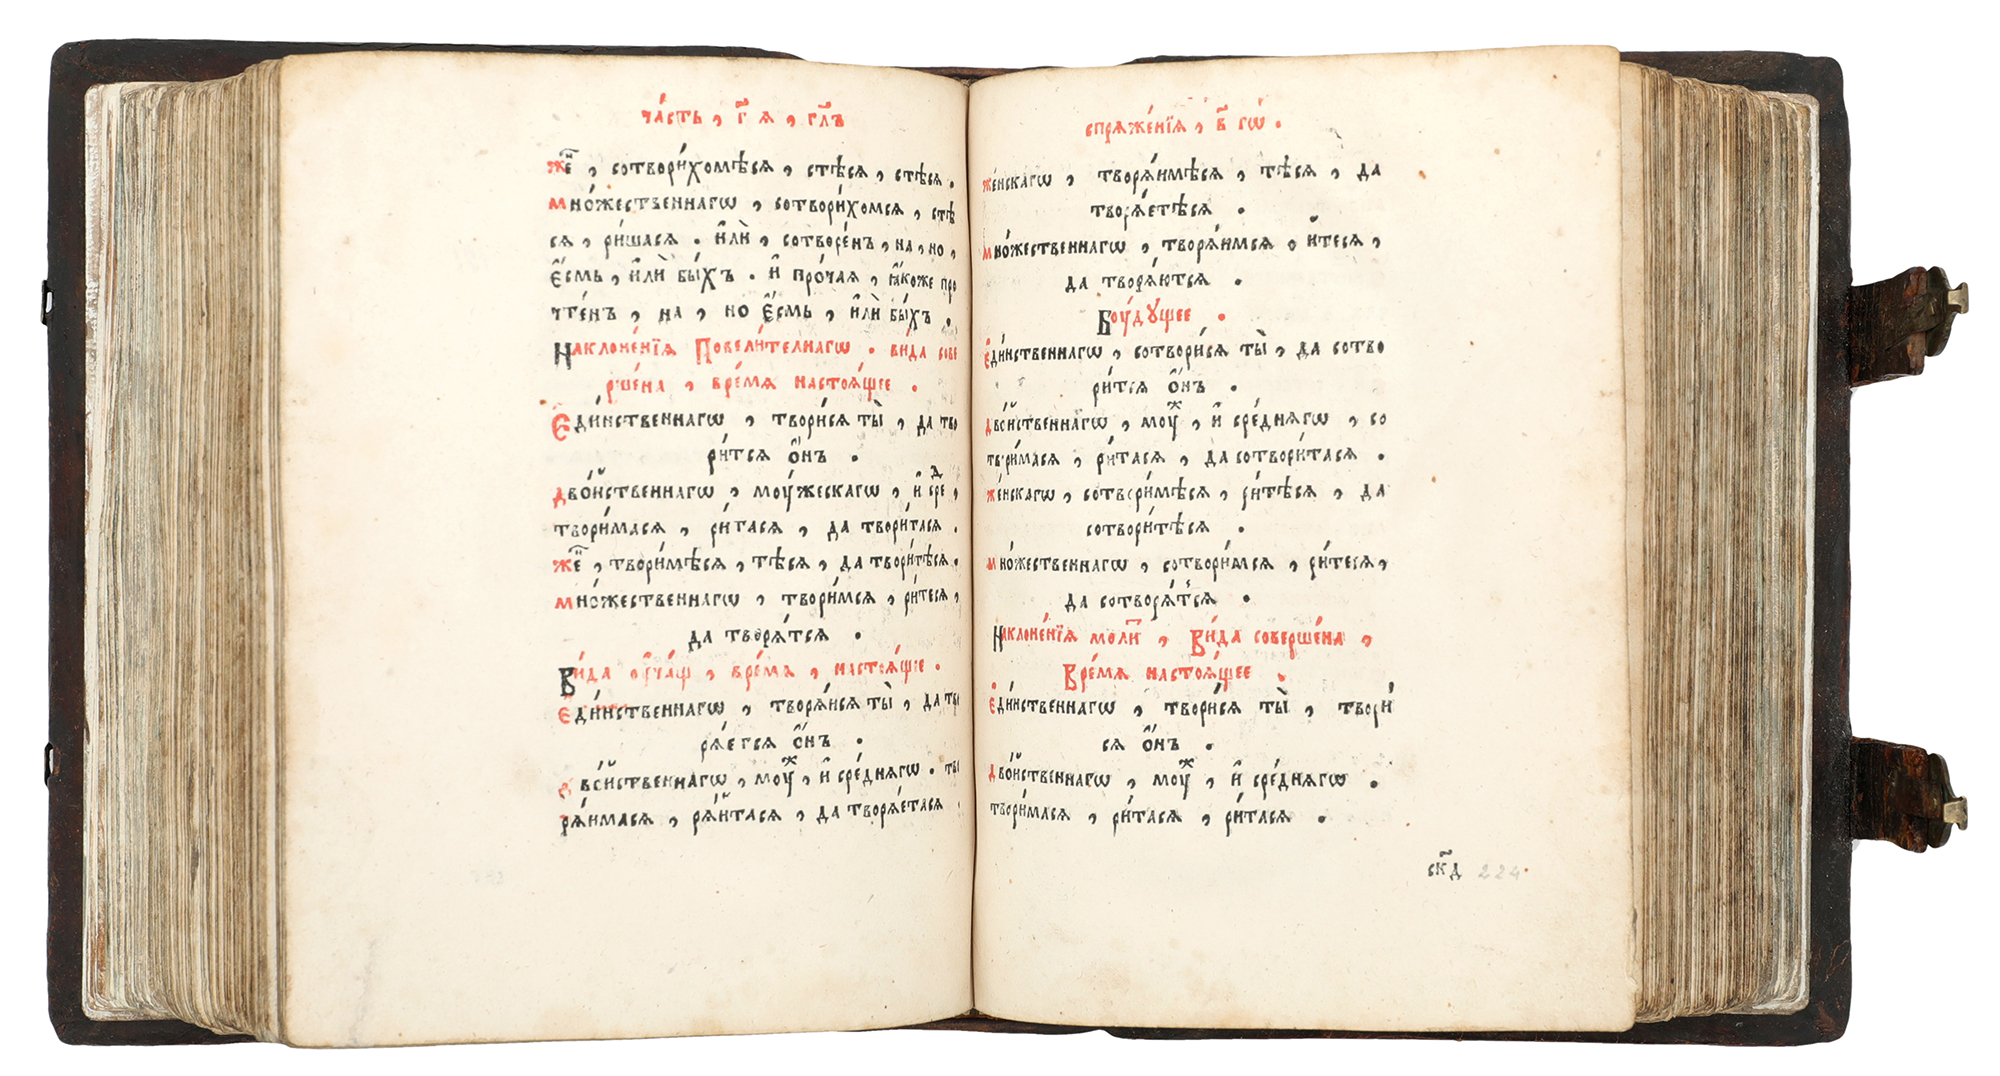 ча́сть , г҃ я , гл҃ъ
же́н , сотвори́хомѣся , стѣся , стѣся .
мно́жественнагѡ , сотвори́хомся , стѣ
ся , ри́шася . и҆лѝ , сотворе́нъ , на , но ,
є҆́смь , и҆лѝ бы́хъ . и҆ про́чая , ꙗ҆́коже про
чте́нъ , на , но є҆́смь , и҆лѝ бы́хъ .
Наклоне́нїя Повели́телнагѡ . ви́да сове
рше́на , вре́мя настоя́щее .
Є҆ди́нственнагѡ , твори́ся ты̀ , да тво
ри́тся ѻ҆́нъ .
дво́йственнагѡ , мꙋ́жескагѡ , и҆ сред ,
твори́мася , ри́тася , да твори́тася .
же́н , твори́мѣся , тѣся , да твори́тѣся .
мно́жественнагѡ , твори́мся , ри́теся ,
да творя́тся .
Ви́да ᲂу҆чащ , вре́мѧ , настоя́щее .
є҆ди́нственнагѡ , творя́йся ты̀ , да тво
ря́ется ѻ҆́нъ .
дво́йственнагѡ , мꙋж , и҆ сре́днягѡ . тво
ря́имася , ря́йтася , да творя́етася
спряже́нїя , в҃ гѡ .
же́нскагѡ , творя́имѣся , тѣся , да
творя́етѣся .
мно́жественнагѡ , творя́имся , йтеся ,
да творя́ются .
Бꙋ́дꙋщее .
є҆ди́нственнагѡ , сотвори́ся ты̀ , да сотво
ри́тся ѻ҆́нъ .
дво́йственнагѡ , мꙋж , и҆ сре́днягѡ , со
твори́мася , ри́тася , да сотвори́тася .
же́нскагѡ , сотвори́мѣся , ри́тѣся , да
сотвори́тѣся .
мно́жественнагѡ , сотвори́мся , ри́теся ,
да сотворя́тся .
Наклоне́нїя моли , Ви́да соверше́на ,
Вре́мя настоя́щее .
є҆ди́нственнагѡ , твори́ся ты̀ , твори́
ся ѻ҆́нъ .
дво́йственнагѡ , мꙋж , и҆ сре́днягѡ .
твори́мася , ри́тася , ри́тася .
ск҃д 224